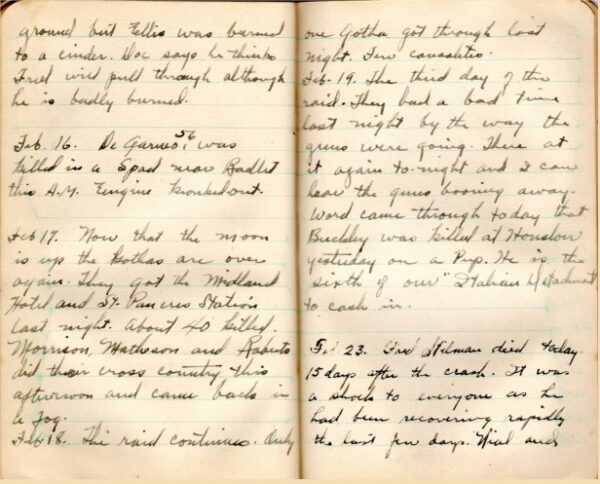 ground but Ellis was burned
to a cinder. Doc says he thinks
Fred will pull through although
he is badly burned.
Feb. 16. De Garmo 56 was
killed in a Spad near Radlet
this A.M. Eungine konked out.
Feb 17. Now that the moon
is up the Gothas are over
again. They got the Midland
Hotel and St. Pancres Station
last night. About 40 killed.
Morrison, Matheson and Roberts
did their cross country this
afternoon and came back in
a fog.
Feb. 18. The raid continues. Only
one Gotha got through last
night. Few causalties.
Feb. 19. The third day of the
raid. They had a bad time
last night by the way the
guns were going. There at
it again to-night and I can
hear the guns booming away.
Word came through today that
Buckley was killed at Hounslow
yesterday on a Pup. He is the
sixth of our "Italian Detachment
to cash in.
Feb 23. Fred Stilman died today.
15 days after the crash. It was
a shock to everyone as he
had been recovering rapidly
the last few days. Nial and